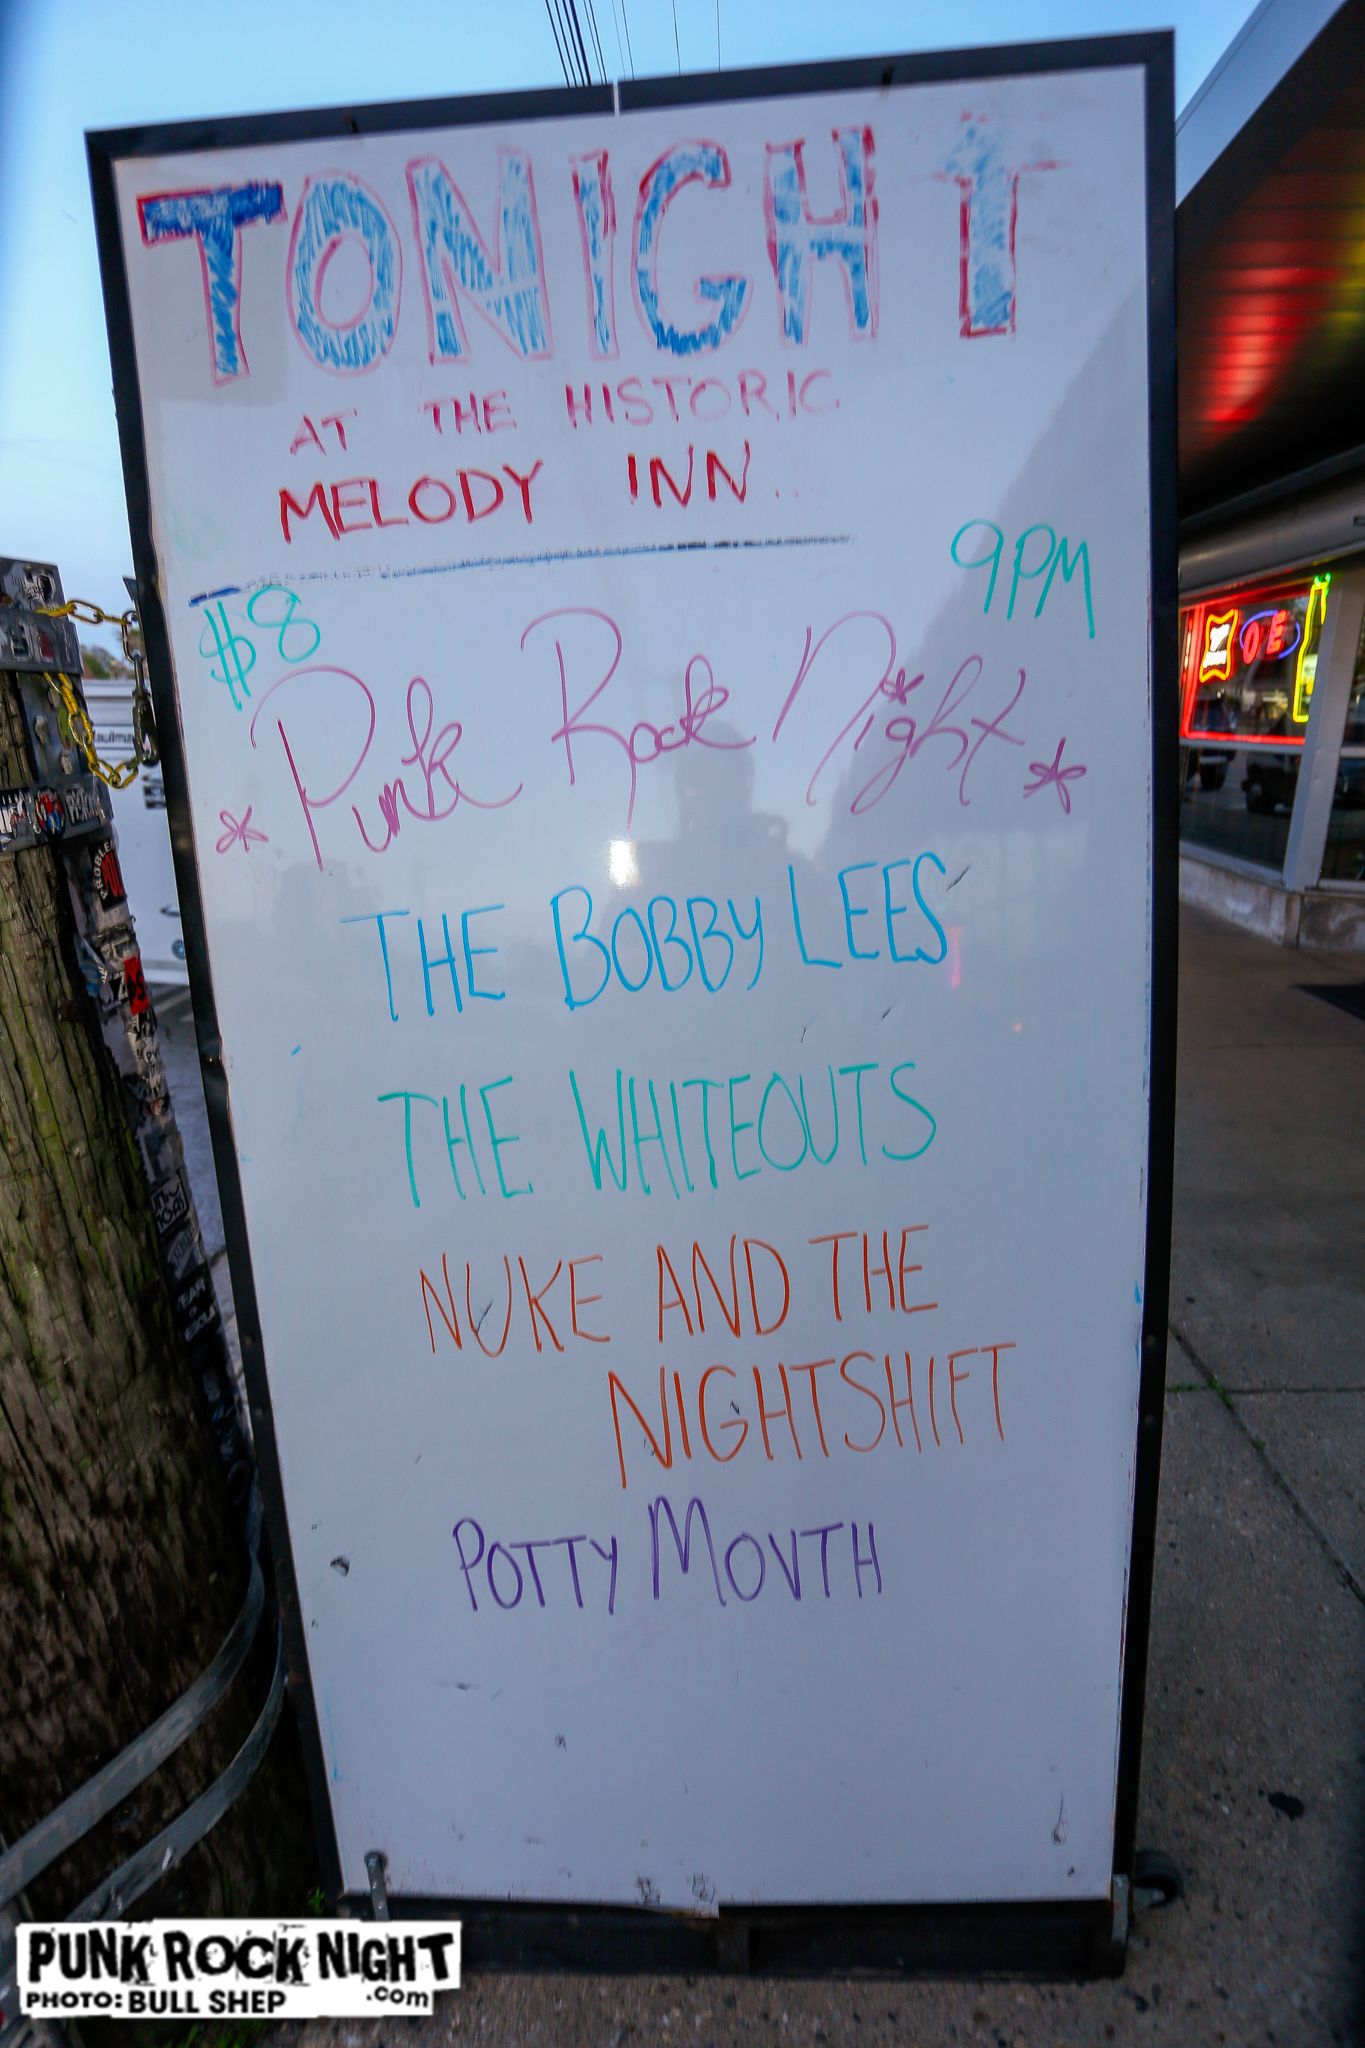 TONIGHT
AT THE HISTORIC
MELODY INN..
$8
9PM
* Punk Rock Night *
THE BOBBY LEES
THE WHITEOUTS
NUKE AND THE
NIGHTSHIFT
POTTY MOUTH
PUNK ROCK NIGHT
.com
PHOTO: BULL SHEP